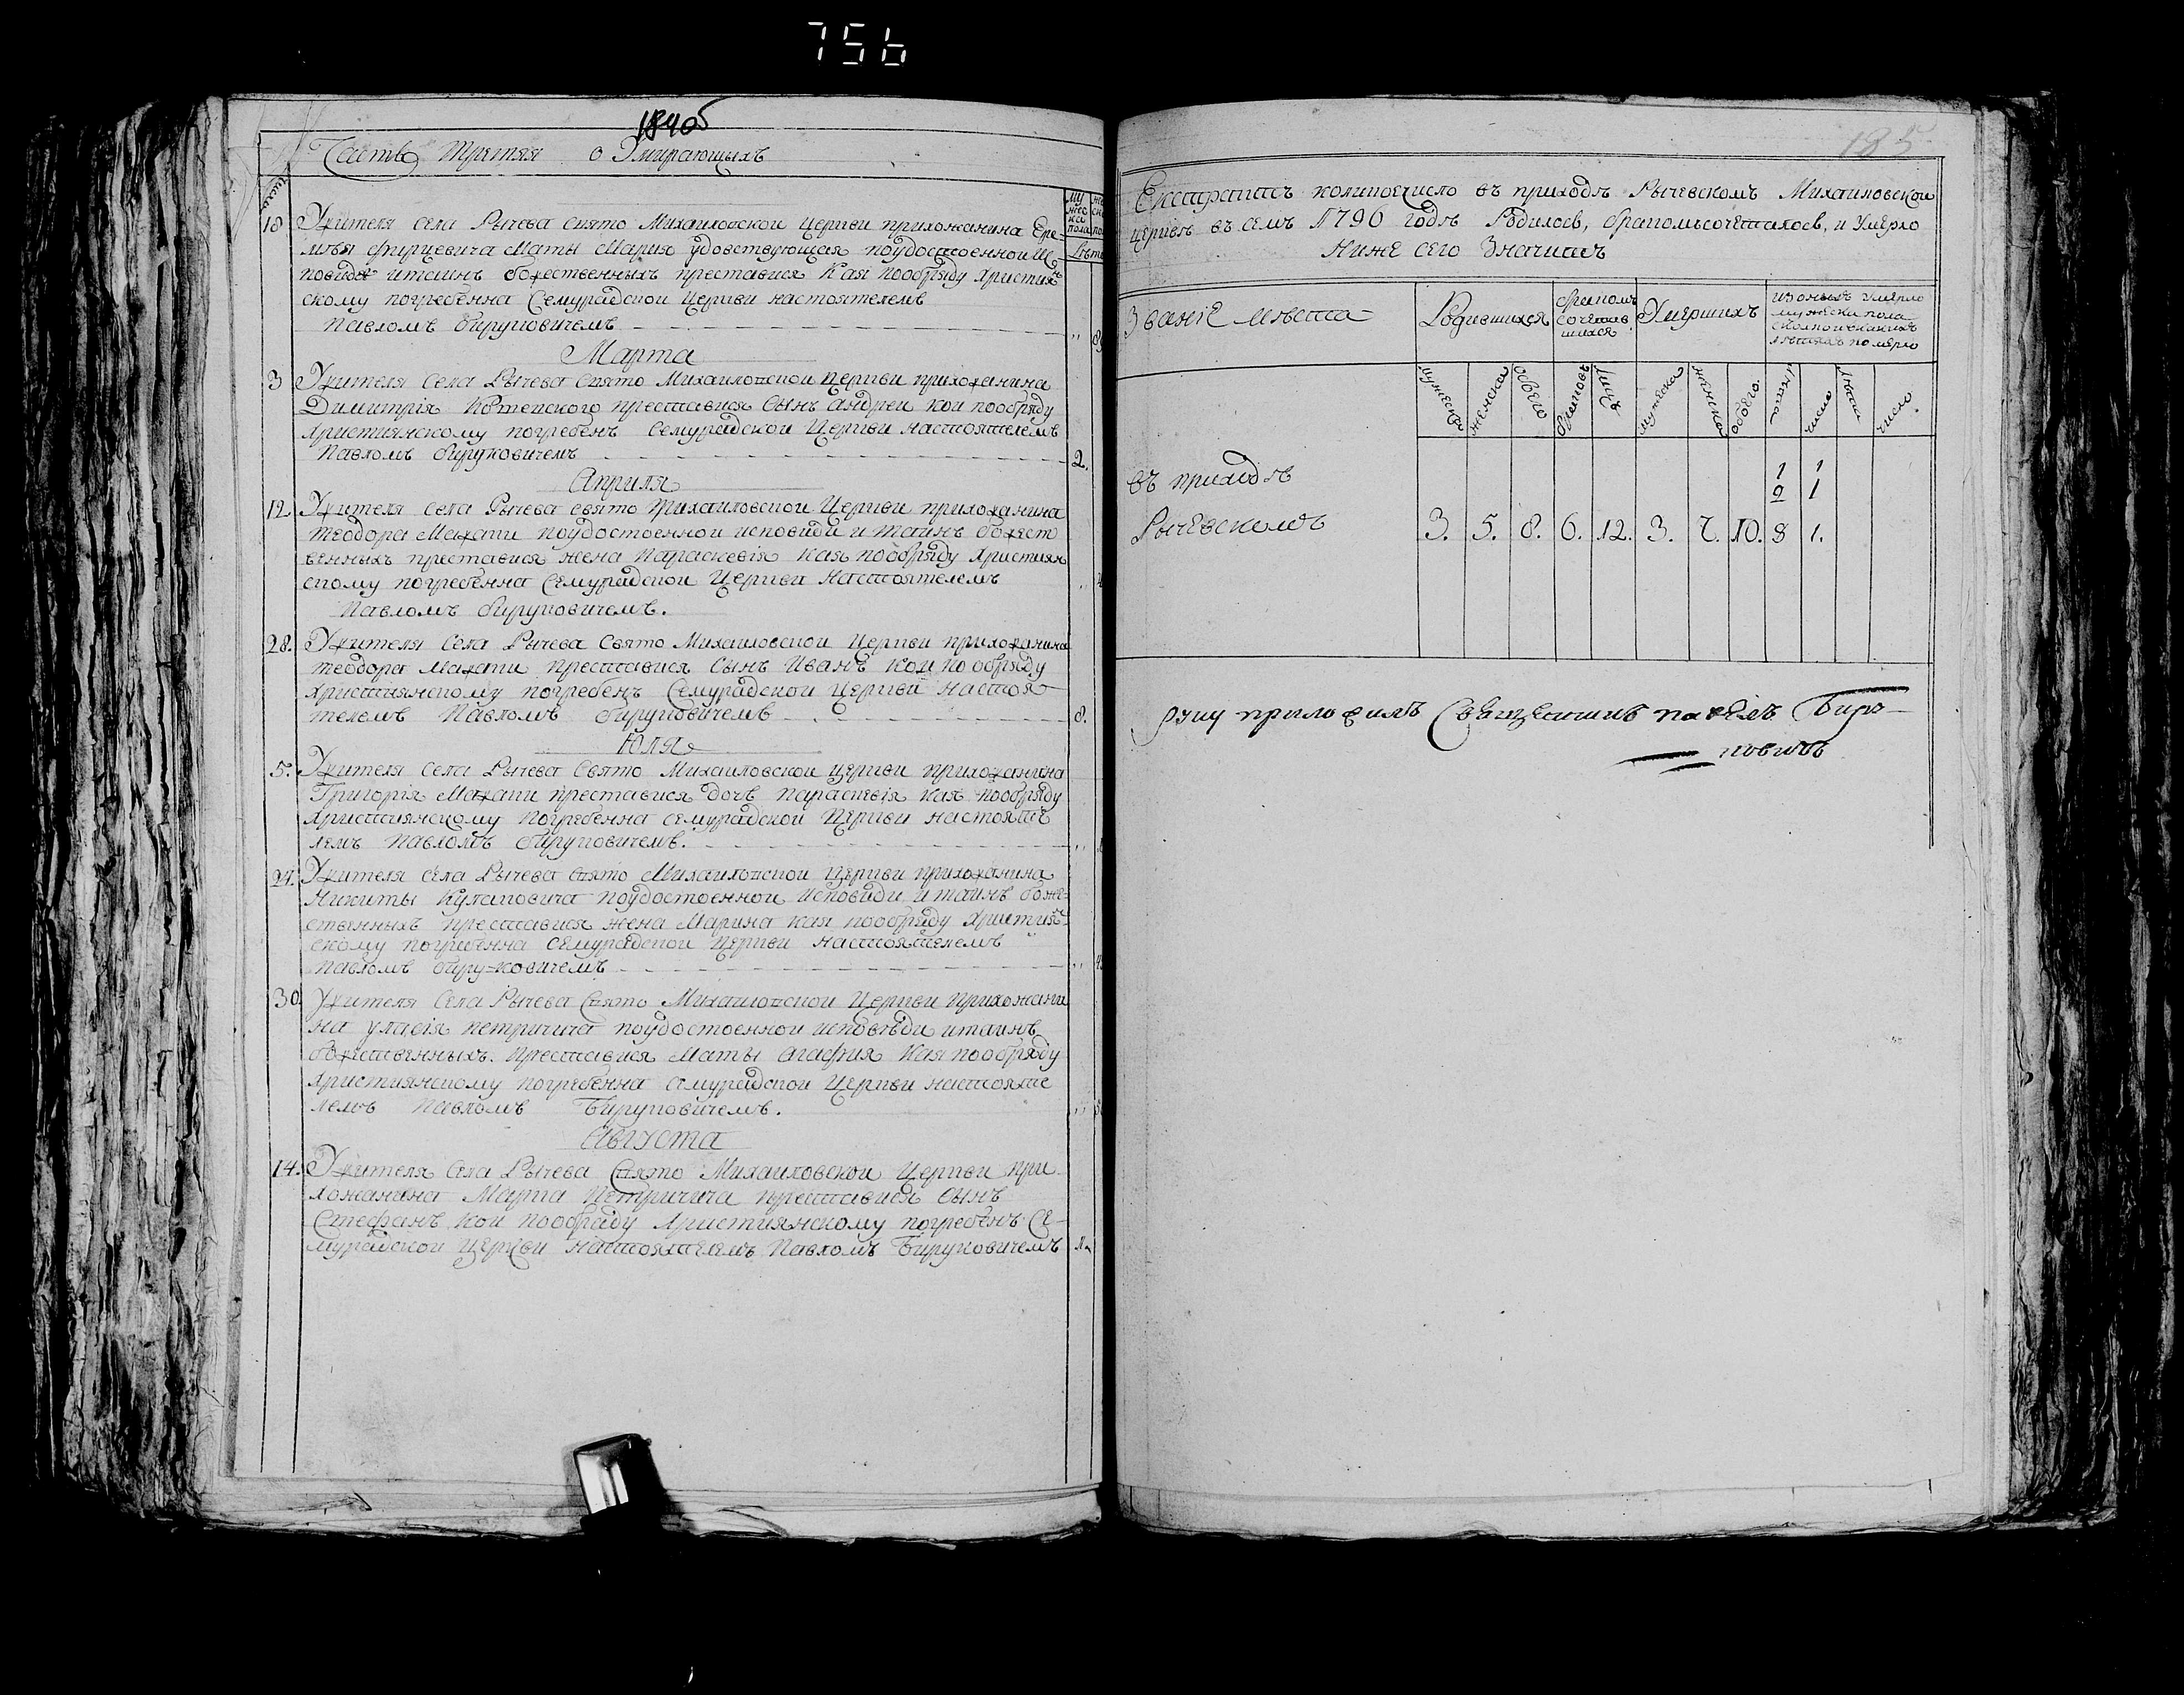 756
184об
Часть третяя о Умирающыхъ
число
му
жес
ка
пола
Лѣта
18 Жителя села Рычева Свято Михаиловской Церкви прихожанина Ере-
мѣя Мати Мария удовствующая поудостоенной Ис
повиди итаинъ божественныхъ преставися Кая пообряду християн
скому погребенна Семурадской Церкви настоятелемъ
Павломъ Бируковичемъ
Марта
3 Жителя Села Рычева Свято Михаиловской Церкви прихожанина
Димитрія преставися Сынъ Андрей кой пообряду
християнскому погребенъ Семурадской Церкви настоятелемъ
Павломъ Бируковичемъ 2.
Априля
12 Жителя Села Рычева свято Михаиловской Церкви прихожанина
теодора Мажани поудостоенной исповиди и таинъ божест
венныхъ преставися жена Параскевія кая пообряду християн
скому погребенна Семурадской Церкви настоятелемъ
Павломъ Бируковичемъ.
28. Жителя Села Рычева Свято Михаиловской Церкви прихожанина
теодора Мажани преставися Сынъ Иванъ кой пообряду
християнскому погребенъ Семурадской Церкви настоя
телемъ Павломъ Бируковичемъ 8.
Юля
5. Жителя Села Рычева Свято Михаиловской Церкви прихожанина
Григорія Мажани преставися дочь параскевія кая пообряду
християнскому погребенна семурадской Церкви настояте
лемъ Павломъ Бируковичемъ.
Жителя села Рычева Свято Михаиловской Церкви прихожанина
Никиты Кулаковича поудостоенной Исповиди и таинъ боже-
ственныхъ преставися жена Марина кая пообряду християн
скому погребенна семурадской Церкви настоятелемъ
Павломъ Биру=ковичемъ
30 Жителя Села Рычева Свято Михаиловской Церкви Прихожани
на уласія петричича поудостоенной исповѣди итаинъ
божественныхъ. преставися Мати агафия Кая пообряду
християнскому погребенна семурадской Церкви настояте
лемъ Павломъ Бируковичемъ.
Августа
14. Жителя Села Рычева Свято Михаиловской Церкви при
хожанина Марка Петричича преставися сынъ
Стефанъ кой пообряду Християнскому погребенъ Се-
мурадской Церкви настоятелемъ Павломъ Бируковичемъ
185
Екстрактъ коликоечисло въ приходѣ Рычевскомъ Михаиловской
церквѣ въ семъ 1790 годѣ Родилось, бракомъсочеталось, и Умерло
Ниже сего Значитъ
Званіе мѣста Родившихся бракомъ
сочетав
шихся Умершихъ изоныхъ умерло
мужеска пола
сколко икакихъ
лѣтахъ померло
мужеска женска обоего браковъ Лицъ мужеска женска обоего лѣта число лѣта число.
1 1
2 1
въ приходѣ
Рычевскомъ 3. 5. 8. 6. 12. 3. 7. 10. 8 1.
руку приложилъ Священникъ павелъ Биру-
ковичъ